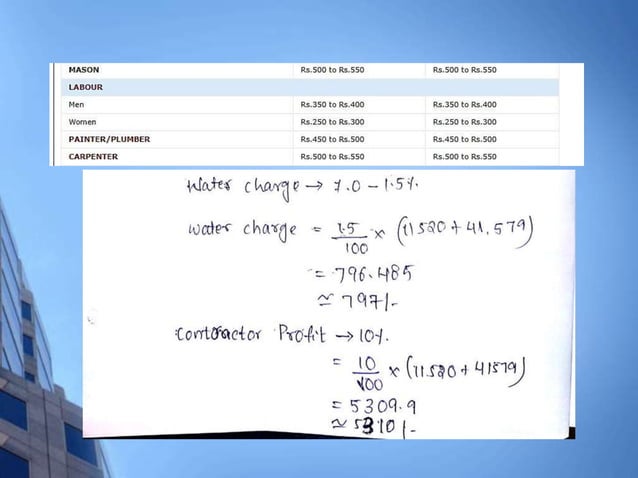 MASON Rs.500 to Rs.550 Rs.500 to Rs.550
LABOUR
Men Rs.350 to Rs.400 Rs.350 to Rs.400
Women Rs.250 to Rs.300 Rs.250 to Rs.300
PAINTER/PLUMBER Rs.450 to Rs.500 Rs.450 to Rs.500
CARPENTER Rs.500 to Rs.550 Rs.500 to Rs.550
Water charge → 1.0 - 1.5%.
water charge = 1.5/100 x (11520 + 41,579)
= 796.485
≃ 797/-
contractor Profit → 10%.
= 10/100 x (11520 + 41579)
= 5309.9
≃ 5310/-